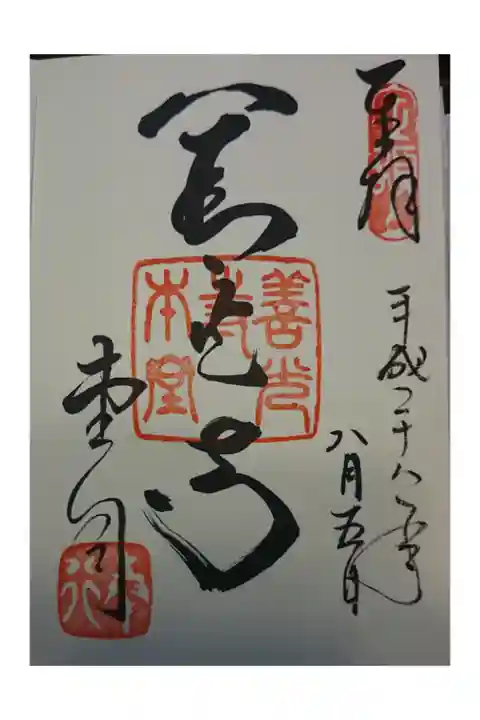 奉拝
定額山
平成二十八年
八月五日
善光寺
善光
寺
本堂
堂司